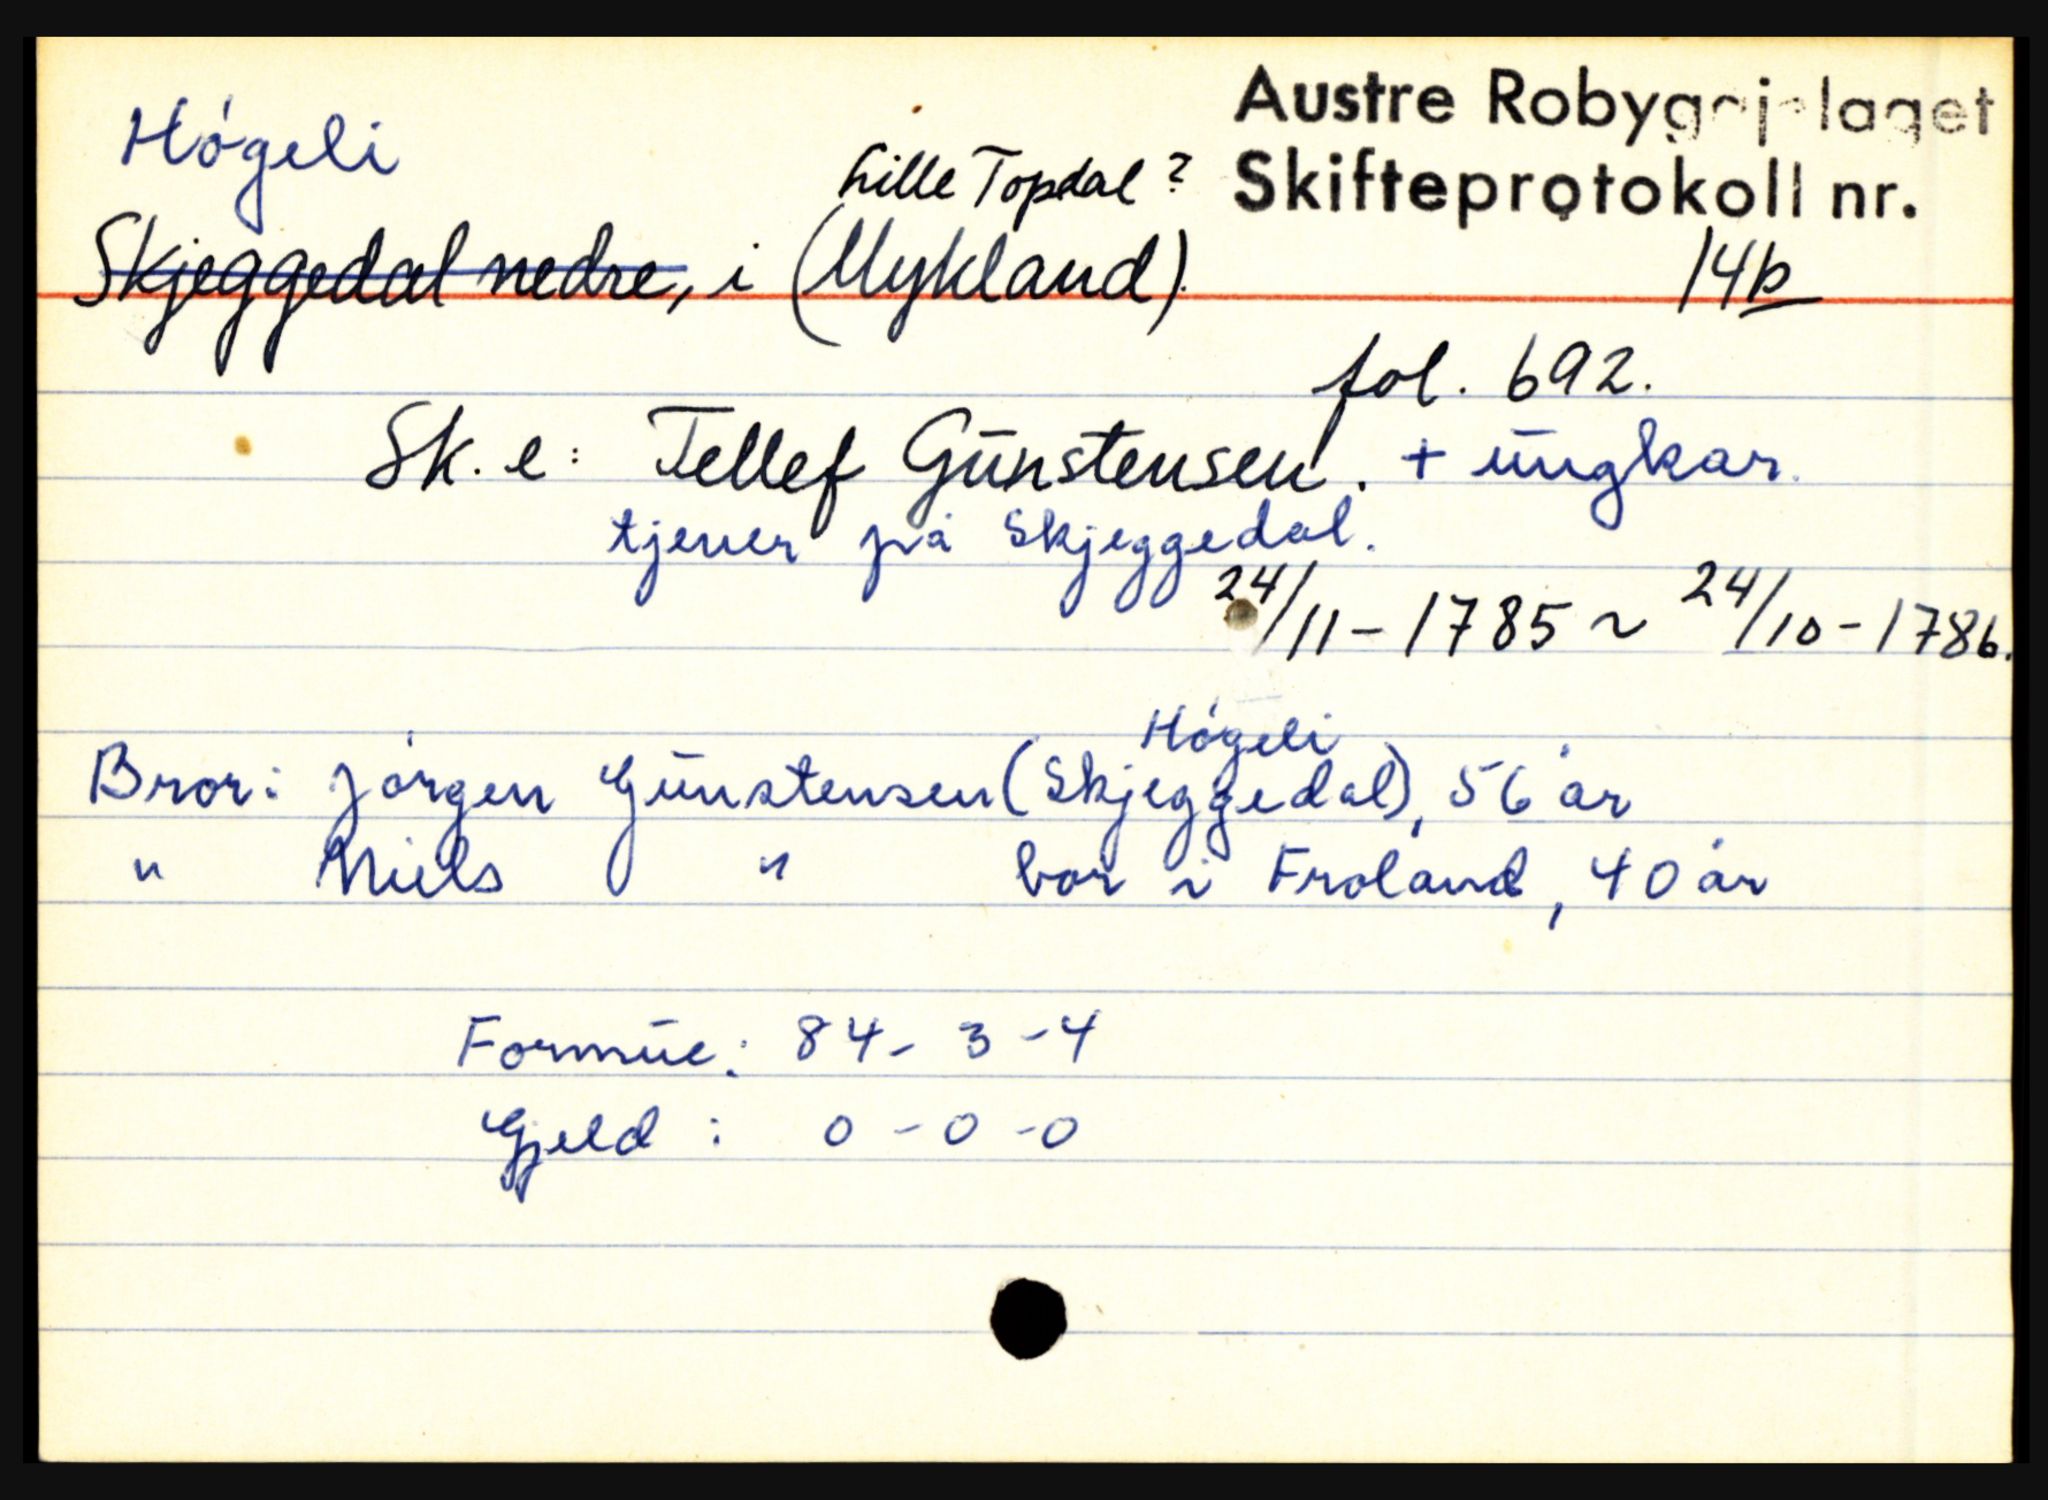 Austre Robyggjelaget
Högeli
Lille Topdal ?
Skifteprotokoll nr.
Skjeggedal nedre, i (Mykland).
14b
fol. 692.
Sk. e: Tellef Gunstensen. + ungkar.
tjener på Skjeggedal.
24/11-1785 ~ 24/10-1786.
Högeli
Bror: Jörgen Gunstensen (Skjeggedal), 56 år
" Niels " bor i Froland, 40 år
Formue: 84 - 3 - 4
Gjeld : 0 - 0 - 0